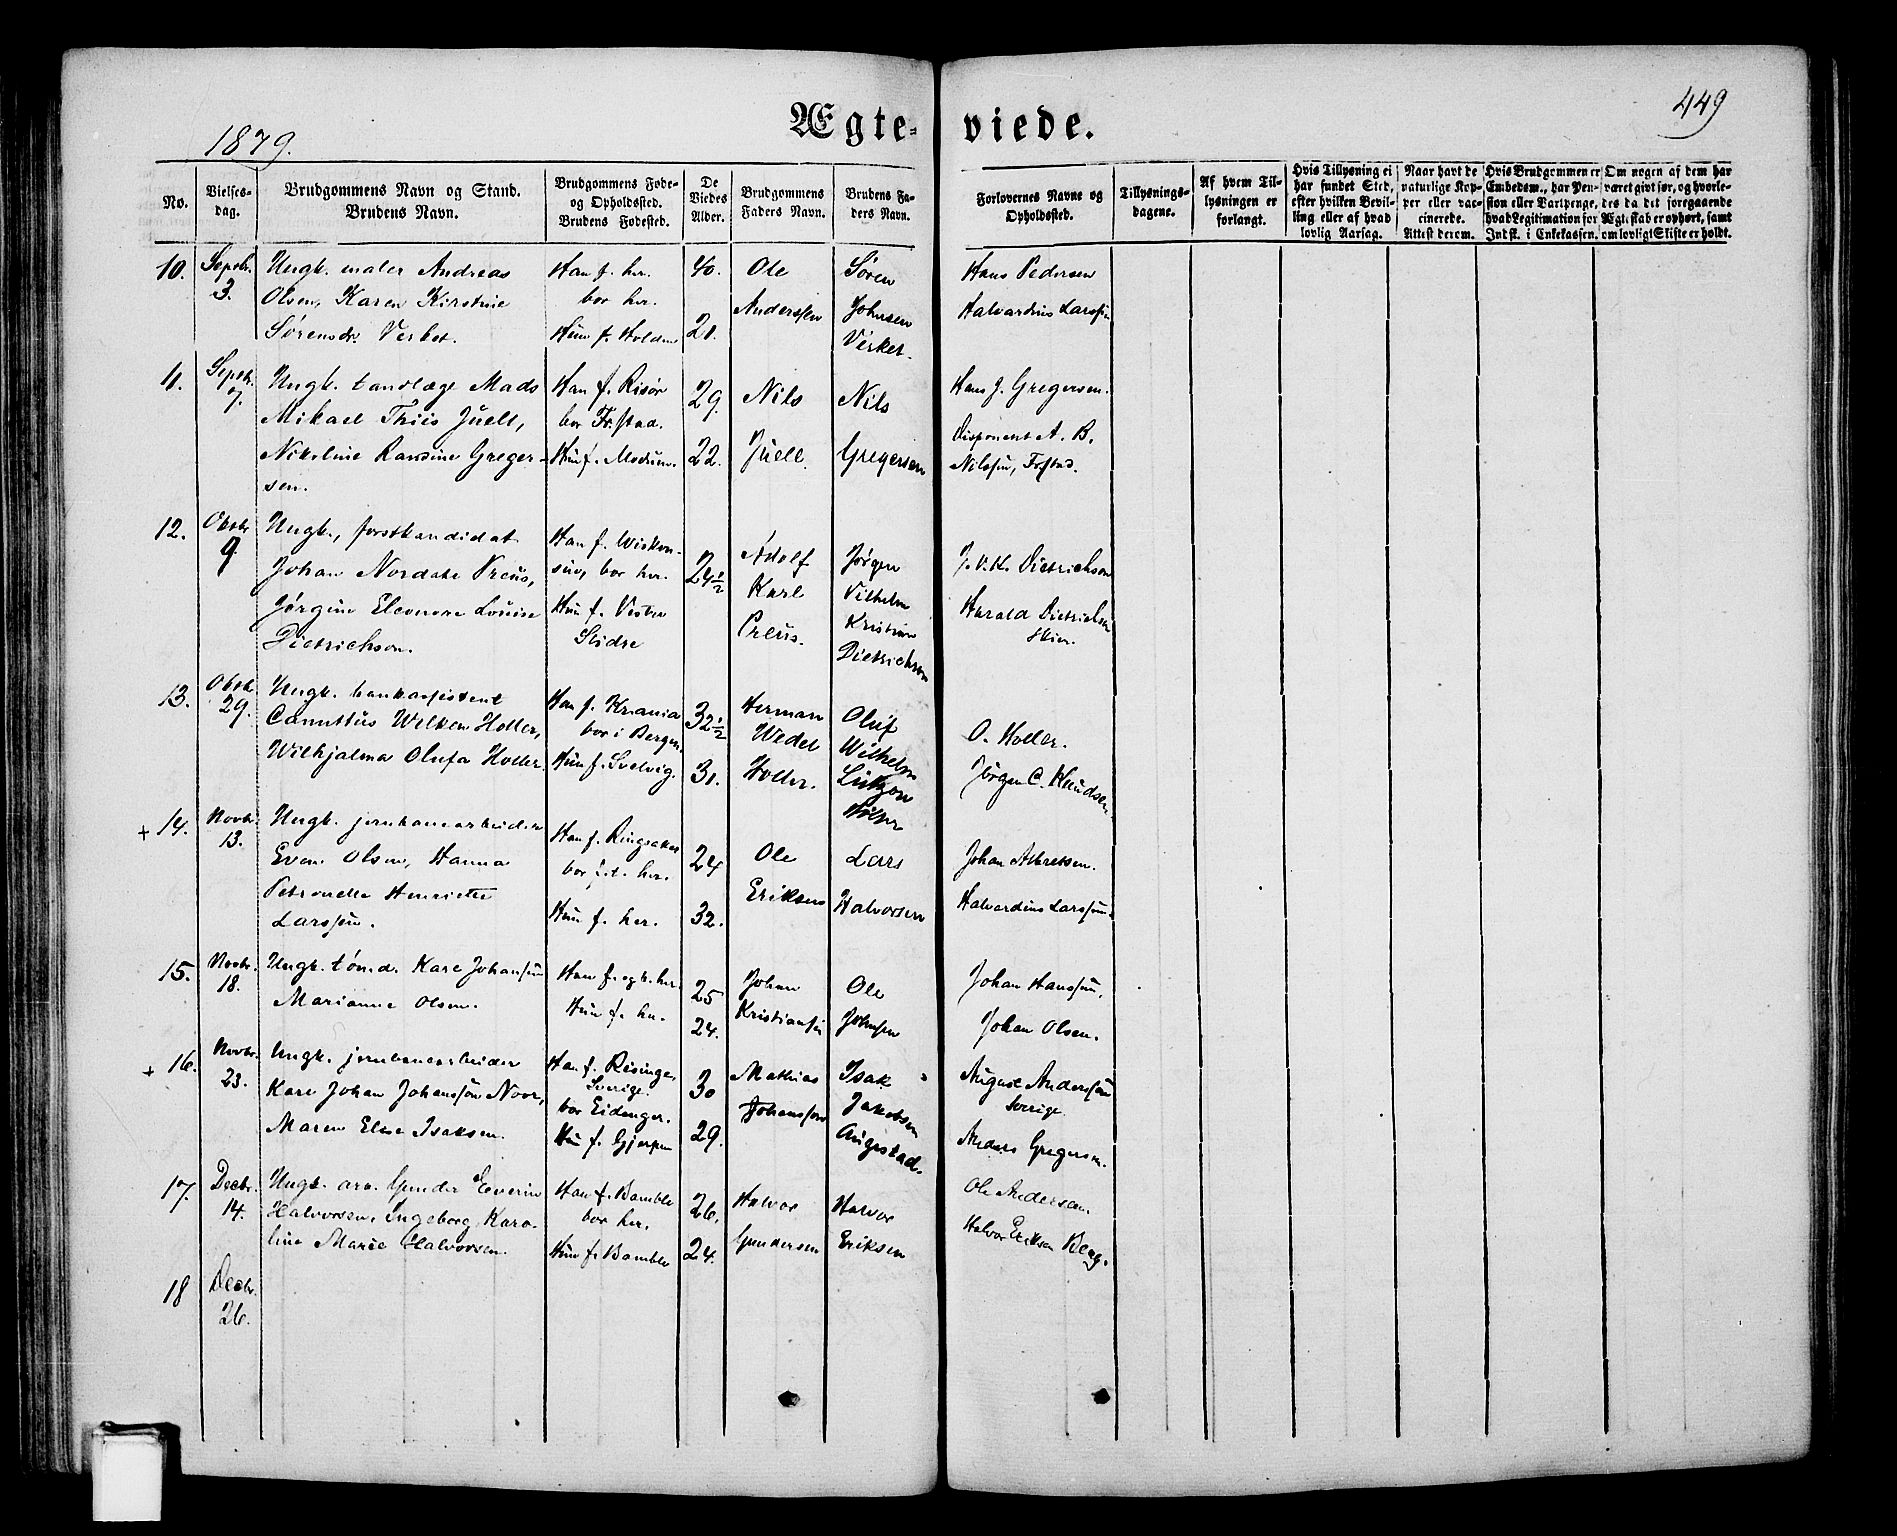 449
1879.
Ægte-
viede.
No.
Vielses-
dag.
Brudgommens Navn og Stand.
Brudens Navn.
Brudgommens Føde-
og Opholdssted.
Brudens Fødested.
De
Viedes
Alder.
Brudgommens
Faders Navn.
Brudens Fa-
ders Navn.
Forlovernes Navne og
Opholdssted.
Tillysnings-
dagene.
Af hvem Til-
lysningen er
forlangt.
Hvis Tillysning ei
har fundet Sted,
efter hvilken Bevil-
ling eller af hvad
lovlig Aarsag.
Naar havt de
naturlige Kop-
per eller vac-
cinerede.
Attest derom.
Hvis Brudgommen er
Embedsm., har Pen-
sion eller Vartpenge,
hvad Legitimation for
Indsk. i Enkekassen.
Om nogen af dem har
været gift før, og hvorle-
des da det foregaaende
Ægteskab er ophørt, samt
om lovligt Skifte er holdt.
10.
Septbr.
3.
Ungk. maler Andreas
Olsen, Karen Kirstine
Sørensdr. Verket.
Han f. her.
bor her.
Hun f. Holden
40.
21.
Ole
Anderssen
Søren
Johnsen
Verket.
Hans Pedersen
Halvardius Larssen
11.
Septbr.
7.
Ungk. tandlæge Mads
Mikael Thiis Juell,
Nikoline Greger-
sen.
Han f. Risør
bor Fr.stad.
Hun f. Modum.
29.
22.
Nils
Juell.
Nils
Gregersen
Hans J. Gregersen.
Disponent A. B.
Nilssen, Frstad.
12.
Oktbr
9
Ungk., forstkandidat
Johan Nordahl Preus,
Jørgine Eleonore Louise
Dietrichson.
Han f. Wiskon-
sin, bor her.
Hun f. Vestre
Slidre
24½
Adolf
Karl
Preus.
Jørgen
Vilhelm
Kristian
Dietrichson
J. V. K. Dietrichson
Harald Dietrichson
Skien.
13.
Oktbr.
29.
Ungk. bankassistent
Canuttus Wilken Holler,
Wilhjalma Olufa Holler.
Han f. Krania
bor i Bergen.
Hun f. Svelvig.
32½
31.
Herman
Wedel
Holler.
Oluf
Wilhelm
Lützow
Holler
O. Holler.
Jørgen C. Knudsen
+ 14.
Novbr.
13.
Ungk. jernbanearbeider
Even Olsen, Hanna
Petronelle Henriette
Larssen.
Han f. Ringsaker
bor f.t. her.
Hun f. her.
24
32.
Ole
Eriksen
Lars
Halvorsen
Johan Albretsen.
Halvardius Larssen.
15.
Novbr.
18.
Ungk. tømd. Karl Johanssen
Marianne Olsen.
Han f. og b. her.
Hun f. her.
25
24.
Johan
Kristianssen
Ole
Johnsen
Johan Hanssen.
Johan Olsen.
+ 16.
Novbr.
23.
Ungk. jernbanearbeider
Karl Johan Johanssøn Noor,
Maren Elise Isaksen.
Han f. Risinge,
Sverige.
bor Eidanger.
Hun f. Gjerpen
30
29.
Mathias
Johansson
Isak
Jakobsen
Augestad.
August Anderssøn
Sverige.
Anders Gregersen.
17.
Decbr.
14.
Ungk. arb. Gunder Severin
Halvorsen, Ingeborg Karo-
line Marie Halvorsen.
Han f. Bamble
bor her.
Hun f. Bamble
26.
24.
Halvor
Gundersen
Halvor
Eriksen
Ole Andersen.
Halvor Eriksen Berg.
18
Decbr.
26.